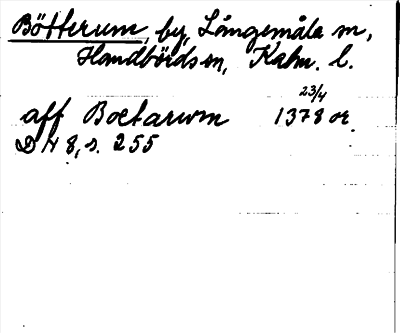 Bötterum, by, Långemåla sn,
Handbörds sn, Kalm. l.
23/4
aff Boetarum 1378 or.
DN 8, s. 255